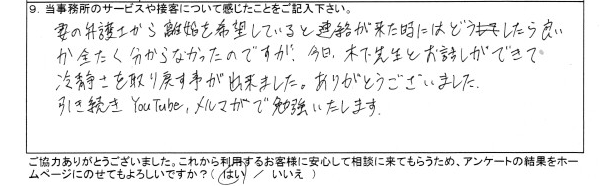 9. 当事務所のサービスや接客について感じたことをご記入下さい。
妻の弁護士から離婚を希望していると連絡が来た時にはどうしたら良い
か全たく分からなかったのですが、今日、木下先生とお話しができて
冷静さを取り戻す事が出来ました。ありがとうございました。
引き続き YouTube, メルマガで勉強いたします。
ご協力ありがとうございました。これから利用するお客様に安心して相談に来てもらうため、アンケートの結果をホー
ムページにのせてもよろしいですか？( はい / いいえ )